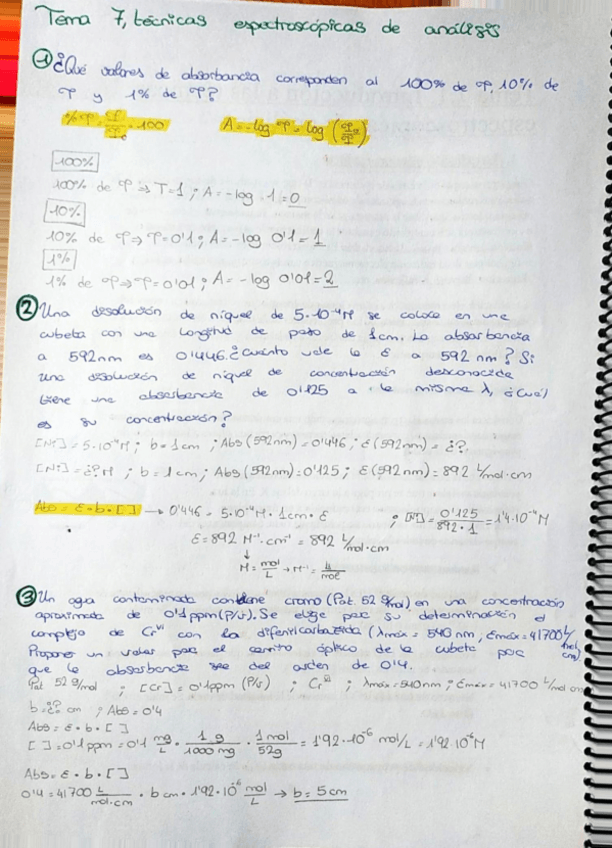 Tema 7, técnicas espectroscópicas de análisis
① ¿Qué valores de absorbancia corresponden al 100% de T, 10% de
T y 1% de T?
%T = T/T₀ · 100 A = -log T = log (T₀/T)
100%
100% de T ⇒ T=1 ; A = -log 1 = 0
10%
10% de T ⇒ T=0'1 ; A = -log 0'1 = 1
1%
1% de T ⇒ T=0'01 ; A = -log 0'01 = 2
② Una desolución de niquel de 5·10⁻⁴M se coloca en una
cubeta con una longitud de paso de 1cm. La absorbancia
a 592nm es 0'446. ¿Cuánto vale la ε a 592 nm? Si
una disolución de niquel de concentración desconocida
tiene una absorbancia de 0'125 a la misma λ, ¿Cuál
es su concentración?
[Ni] = 5·10⁻⁴M ; b = 1cm ; Abs (592nm) = 0'446 ; ε (592nm) = ¿?
[Ni] = ¿? M ; b = 1cm ; Abs (592nm) = 0'125 ; ε (592nm) = 892 L/mol·cm
Abs = ε·b·[ ] → 0'446 = 5·10⁻⁴M · 1cm · ε ; [Ni] = 0'125/892·1 = 1'4·10⁻⁴M
ε = 892 M⁻¹·cm⁻¹ = 892 L/mol·cm
↓
M = mol/L → M⁻¹ = L/mol
③ Un agua contaminada contiene cromo (Pat. 52 g/mol) en una concentración
aproximada de 0'1 ppm (P/V). Se elige para su determinación el
complejo de Crⱽᴵ con la difenilcarbazida (λmáx = 540 nm, εmáx = 41700 L/mol cm)
Proponer un valor para el camino óptico de la cubeta para
que la absorbancia sea del orden de 0'4.
Pat 52 g/mol ; [Cr] = 0'1ppm (P/V) ; Crⱽᴵ ; λmáx = 540nm ; εmáx = 41700 L/mol cm
b = ¿? cm ; Abs = 0'4
Abs = ε·b·[ ]
[ ] = 0'1 ppm = 0'1 mg/L · 1 g/1000 mg · 1 mol/52g = 1'92·10⁻⁶ mol/L = 1'92·10⁻⁶M
Abs = ε·b·[ ]
0'4 = 41700 L/mol·cm · b cm · 1'92·10⁻⁶ mol/L → b = 5cm